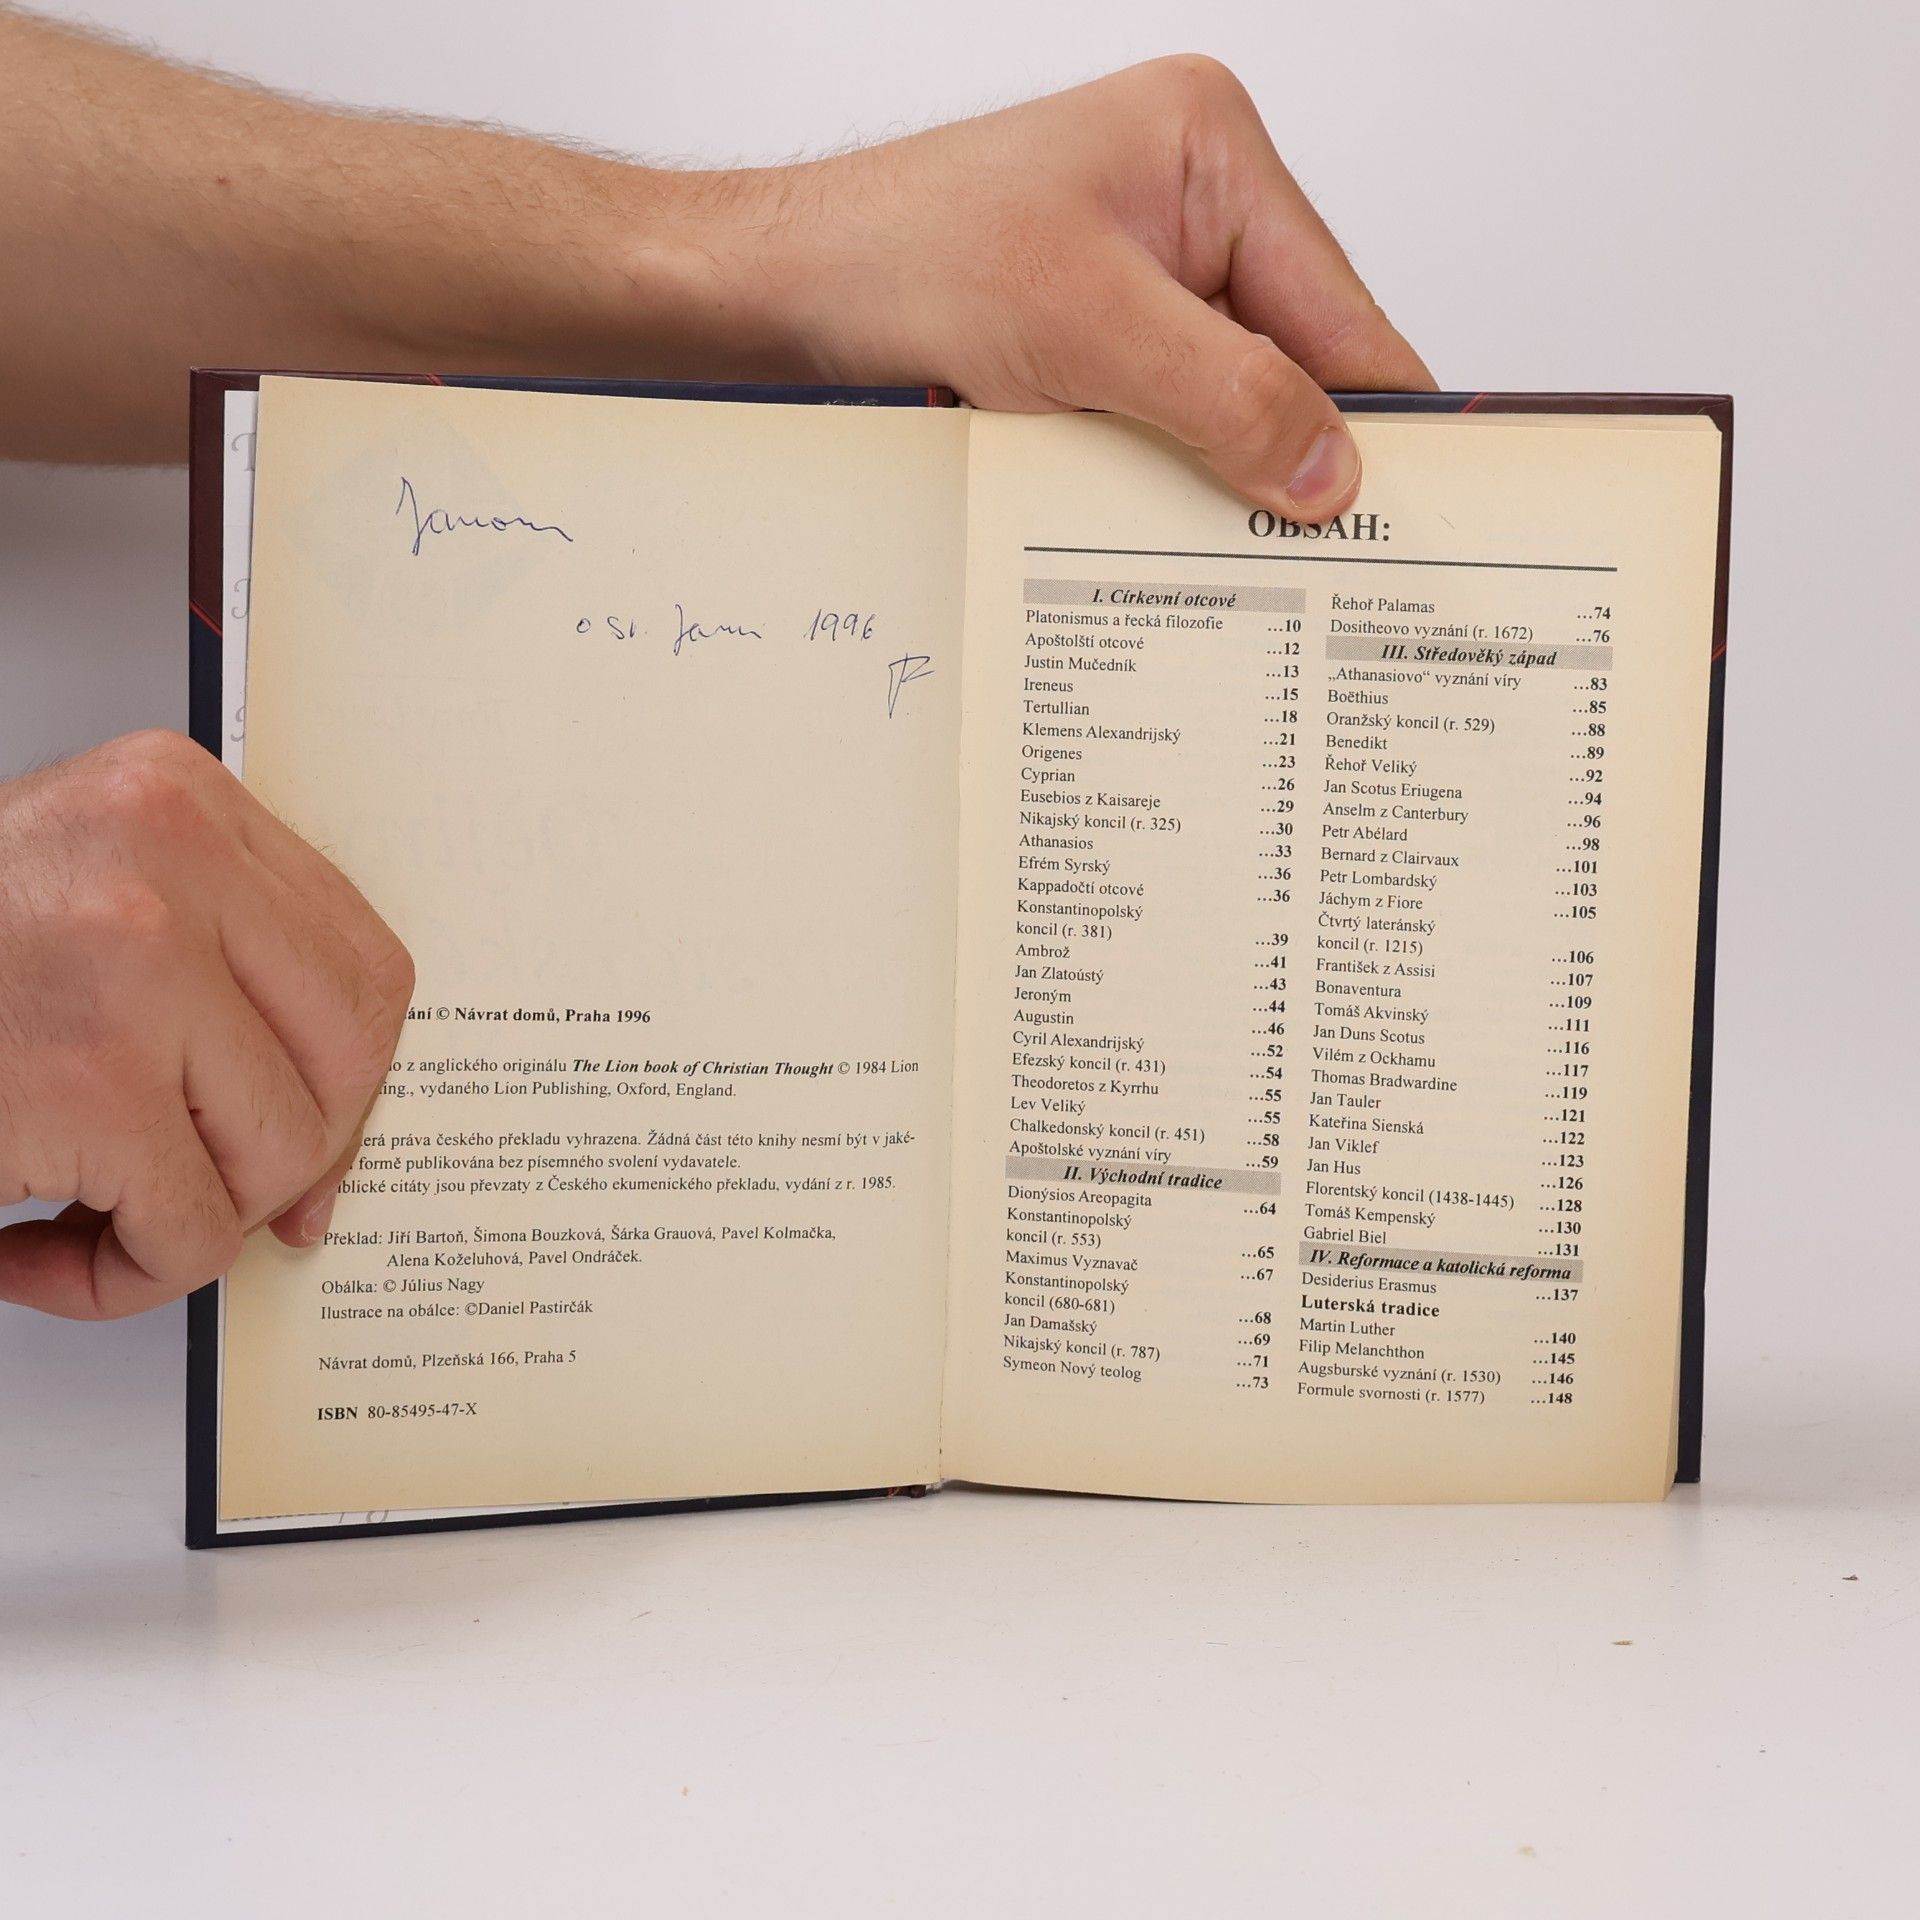 1996
ání © Návrat domů, Praha 1996
o z anglického originálu The Lion book of Christian Thought © 1984 Lion
ing., vydaného Lion Publishing, Oxford, England.
erá práva českého překladu vyhrazena. Žádná část této knihy nesmí být v jaké-
formě publikována bez písemného svolení vydavatele.
blické citáty jsou převzaty z Českého ekumenického překladu, vydání z r. 1985.
Překlad: Jiří Bartoň, Šimona Bouzková, Šárka Grauová, Pavel Kolmačka,
Alena Koželuhová, Pavel Ondráček.
Obálka: © Július Nagy
Ilustrace na obálce: ©Daniel Pastirčák
Návrat domů, Plzeňská 166, Praha 5
ISBN 80-85495-47-X
OBSAH:
I. Církevní otcové
Platonismus a řecká filozofie ...10
Apoštolští otcové ...12
Justin Mučedník ...13
Ireneus ...15
Tertullian ...18
Klemens Alexandrijský ...21
Origenes ...23
Cyprian ...26
Eusebios z Kaisareje ...29
Nikajský koncil (r. 325) ...30
Athanasios ...33
Efrém Syrský ...36
Kappadočtí otcové ...36
Konstantinopolský
koncil (r. 381) ...39
Ambrož ...41
Jan Zlatoústý ...43
Jeroným ...44
Augustin ...46
Cyril Alexandrijský ...52
Efezský koncil (r. 431) ...54
Theodoretos z Kyrrhu ...55
Lev Veliký ...55
Chalkedonský koncil (r. 451) ...58
Apoštolské vyznání víry ...59
II. Východní tradice
Dionýsios Areopagita ...64
Konstantinopolský
koncil (r. 553) ...65
Maximus Vyznavač ...67
Konstantinopolský
koncil (680-681) ...68
Jan Damašský ...69
Nikajský koncil (r. 787) ...71
Symeon Nový teolog ...73
Řehoř Palamas ...74
Dositheovo vyznání (r. 1672) ...76
III. Středověký západ
„Athanasiovo“ vyznání víry ...83
Boëthius ...85
Oranžský koncil (r. 529) ...88
Benedikt ...89
Řehoř Veliký ...92
Jan Scotus Eriugena ...94
Anselm z Canterbury ...96
Petr Abélard ...98
Bernard z Clairvaux ...101
Petr Lombardský ...103
Jáchym z Fiore ...105
Čtvrtý lateránský
koncil (r. 1215) ...106
František z Assisi ...107
Bonaventura ...109
Tomáš Akvinský ...111
Jan Duns Scotus ...116
Vilém z Ockhamu ...117
Thomas Bradwardine ...119
Jan Tauler ...121
Kateřina Sienská ...122
Jan Viklef ...123
Jan Hus ...126
Florentský koncil (1438-1445) ...128
Tomáš Kempenský ...130
Gabriel Biel ...131
IV. Reformace a katolická reforma
Desiderius Erasmus ...137
Luterská tradice
Martin Luther ...140
Filip Melanchthon ...145
Augsburské vyznání (r. 1530) ...146
Formule svornosti (r. 1577) ...148